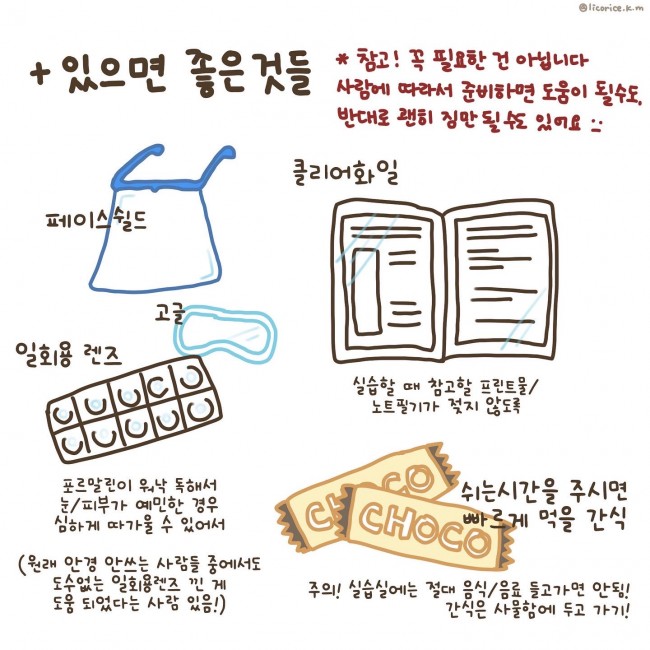 @licorice.k.m
+ 있으면 좋은것들
* 참고! 꼭 필요한 건 아닙니다
사람에 따라서 준비하면 도움이 될수도,
반대로 괜히 짐만 될수도 있어요 :-
페이스쉴드
고글
일회용 렌즈
포르말린이 워낙 독해서
눈/피부가 예민한 경우
심하게 따가울 수 있어서
(원래 안경 안쓰는 사람들 중에서도
도수없는 일회용렌즈 낀 게
도움 되었다는 사람 있음!)
클리어화일
실습할 때 참고할 프린트물/
노트필기가 젖지 않도록
CHOCO
CHOCO
쉬는시간을 주시면
빠르게 먹을 간식
주의! 실습실에는 절대 음식/음료 들고가면 안됨!
간식은 사물함에 두고 가기!